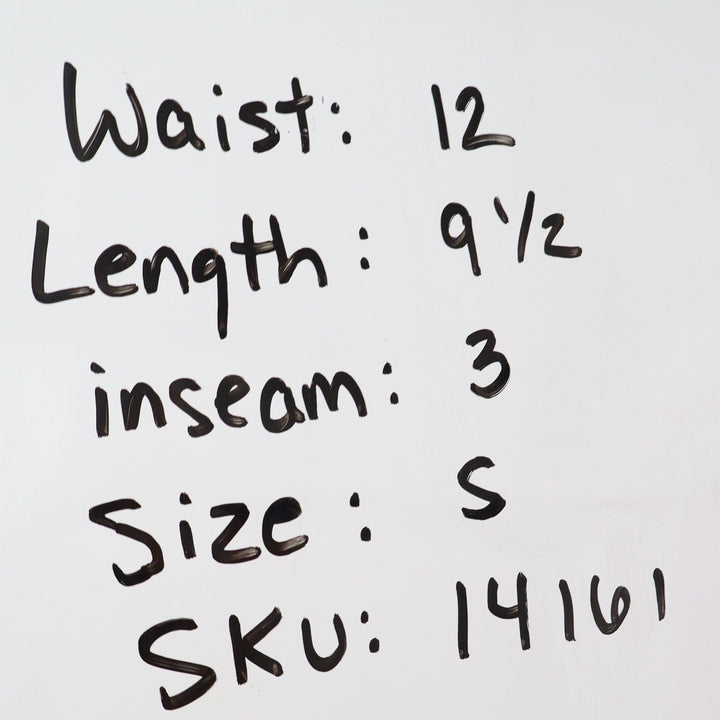 Waist: 12
Length: 9 1/2
inseam: 3
Size: S
SKU: 14161